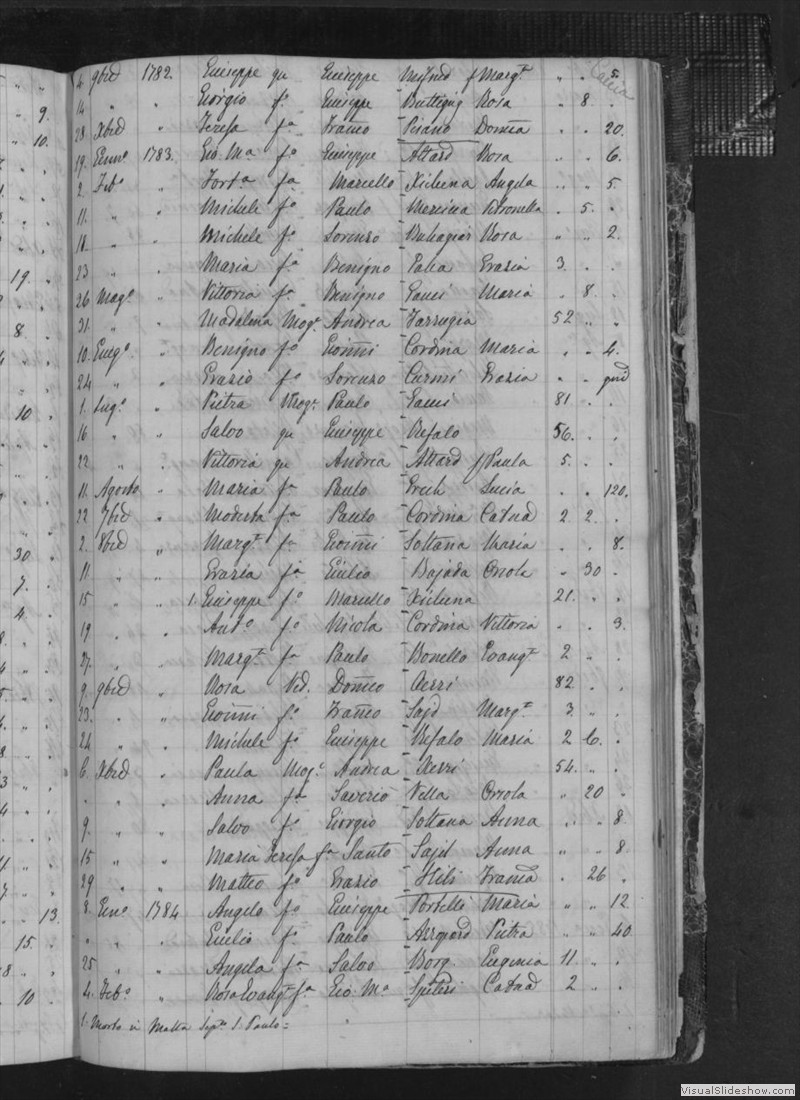 4 9bre 1782. Giuseppe qu Giuseppe Mifsud f Marg.ta " " 5.
14 " " Giorgio f.o Giuseppe Buttigieg Rosa " 8 .
28 Xbre " Teresa f.a Franco Pisano Dom.ca . . 20.
19. Genn.o 1783. Gio. M.a f.o Giuseppe Attard Rosa . . 6.
2. Feb.o " Fort.a f.a Marcello Xicluna Angela . . 5.
11. " " Michele f.o Paulo Mercieca Petronella . 5. .
18. " " Michele f.o Lorenzo Buhagiar Rosa " " 2.
23 " . Maria f.a Benigno Grazia 3. . .
26 Mag.o " Vittoria f.a Benigno Gauci Maria . 8. .
31. " " Madalena Mog.e Andrea Farrugia 52 " "
10. Giug.o . Benigno f.o Gioanni Cordina Maria . . 4.
24 " " Grazio f.o Lorenzo Grazia . .
1. Lug.o " Pietra Mog.e Paulo Gauci 81 . .
16 " " Salvo qu Giuseppe Refalo 56. . .
22 " . Vittoria qu Andrea Attard f Paula 5. . .
11. Agosto " Maria f.a Paulo Grech Lucia . . 120.
22 7bre " Modesta f.a Paulo Cordina Cat.na 2 2. .
2. 8bre " Marg.ta f.a Gioanni Soltana Maria . . 8.
11. " " Grazia f.a Giulio Bajada Orsola " 30 .
15 " " 1. Giuseppe f.o Marcello Xicluna 21. . .
19. . . Ant.o f.o Nicola Cordina Vittoria . . 3.
27. " " Marg.ta f.a Paulo Bonello Evang.ta 2 " .
9. 9bre " Rosa Ved. Dom.co 82 . .
23. " " Gioanni f.o Franco Sajd Marg.ta 3. " .
24 " " Michele f.o Giuseppe Refalo Maria 2 6. .
6. Xbre " Paula Mog.e Andrea Xerri 54. " .
. " . Anna f.a Saverio Vella Orsola " 20 "
9. " " Salvo f.o Giorgio Soltana Anna . . 8
15 " " Maria Teresa f.a Santo Sajd Anna " " 8.
29 " " Matteo f.o Grazio Hili Franca . 26 .
8. Gen.o 1784. Angelo f.o Giuseppe Portelli Maria " " 12
" . " Giulio f.o Paulo Pietra " " 40
25 " " Angela f.a Salvo Borg Eugenia 11. " .
4. Feb.o " Rosa Evang.ta f.a Gio. M.a Spiteri Cat.na 2 " .
1. Morto in Malta S. Paulo =
VisualSlideshow.com